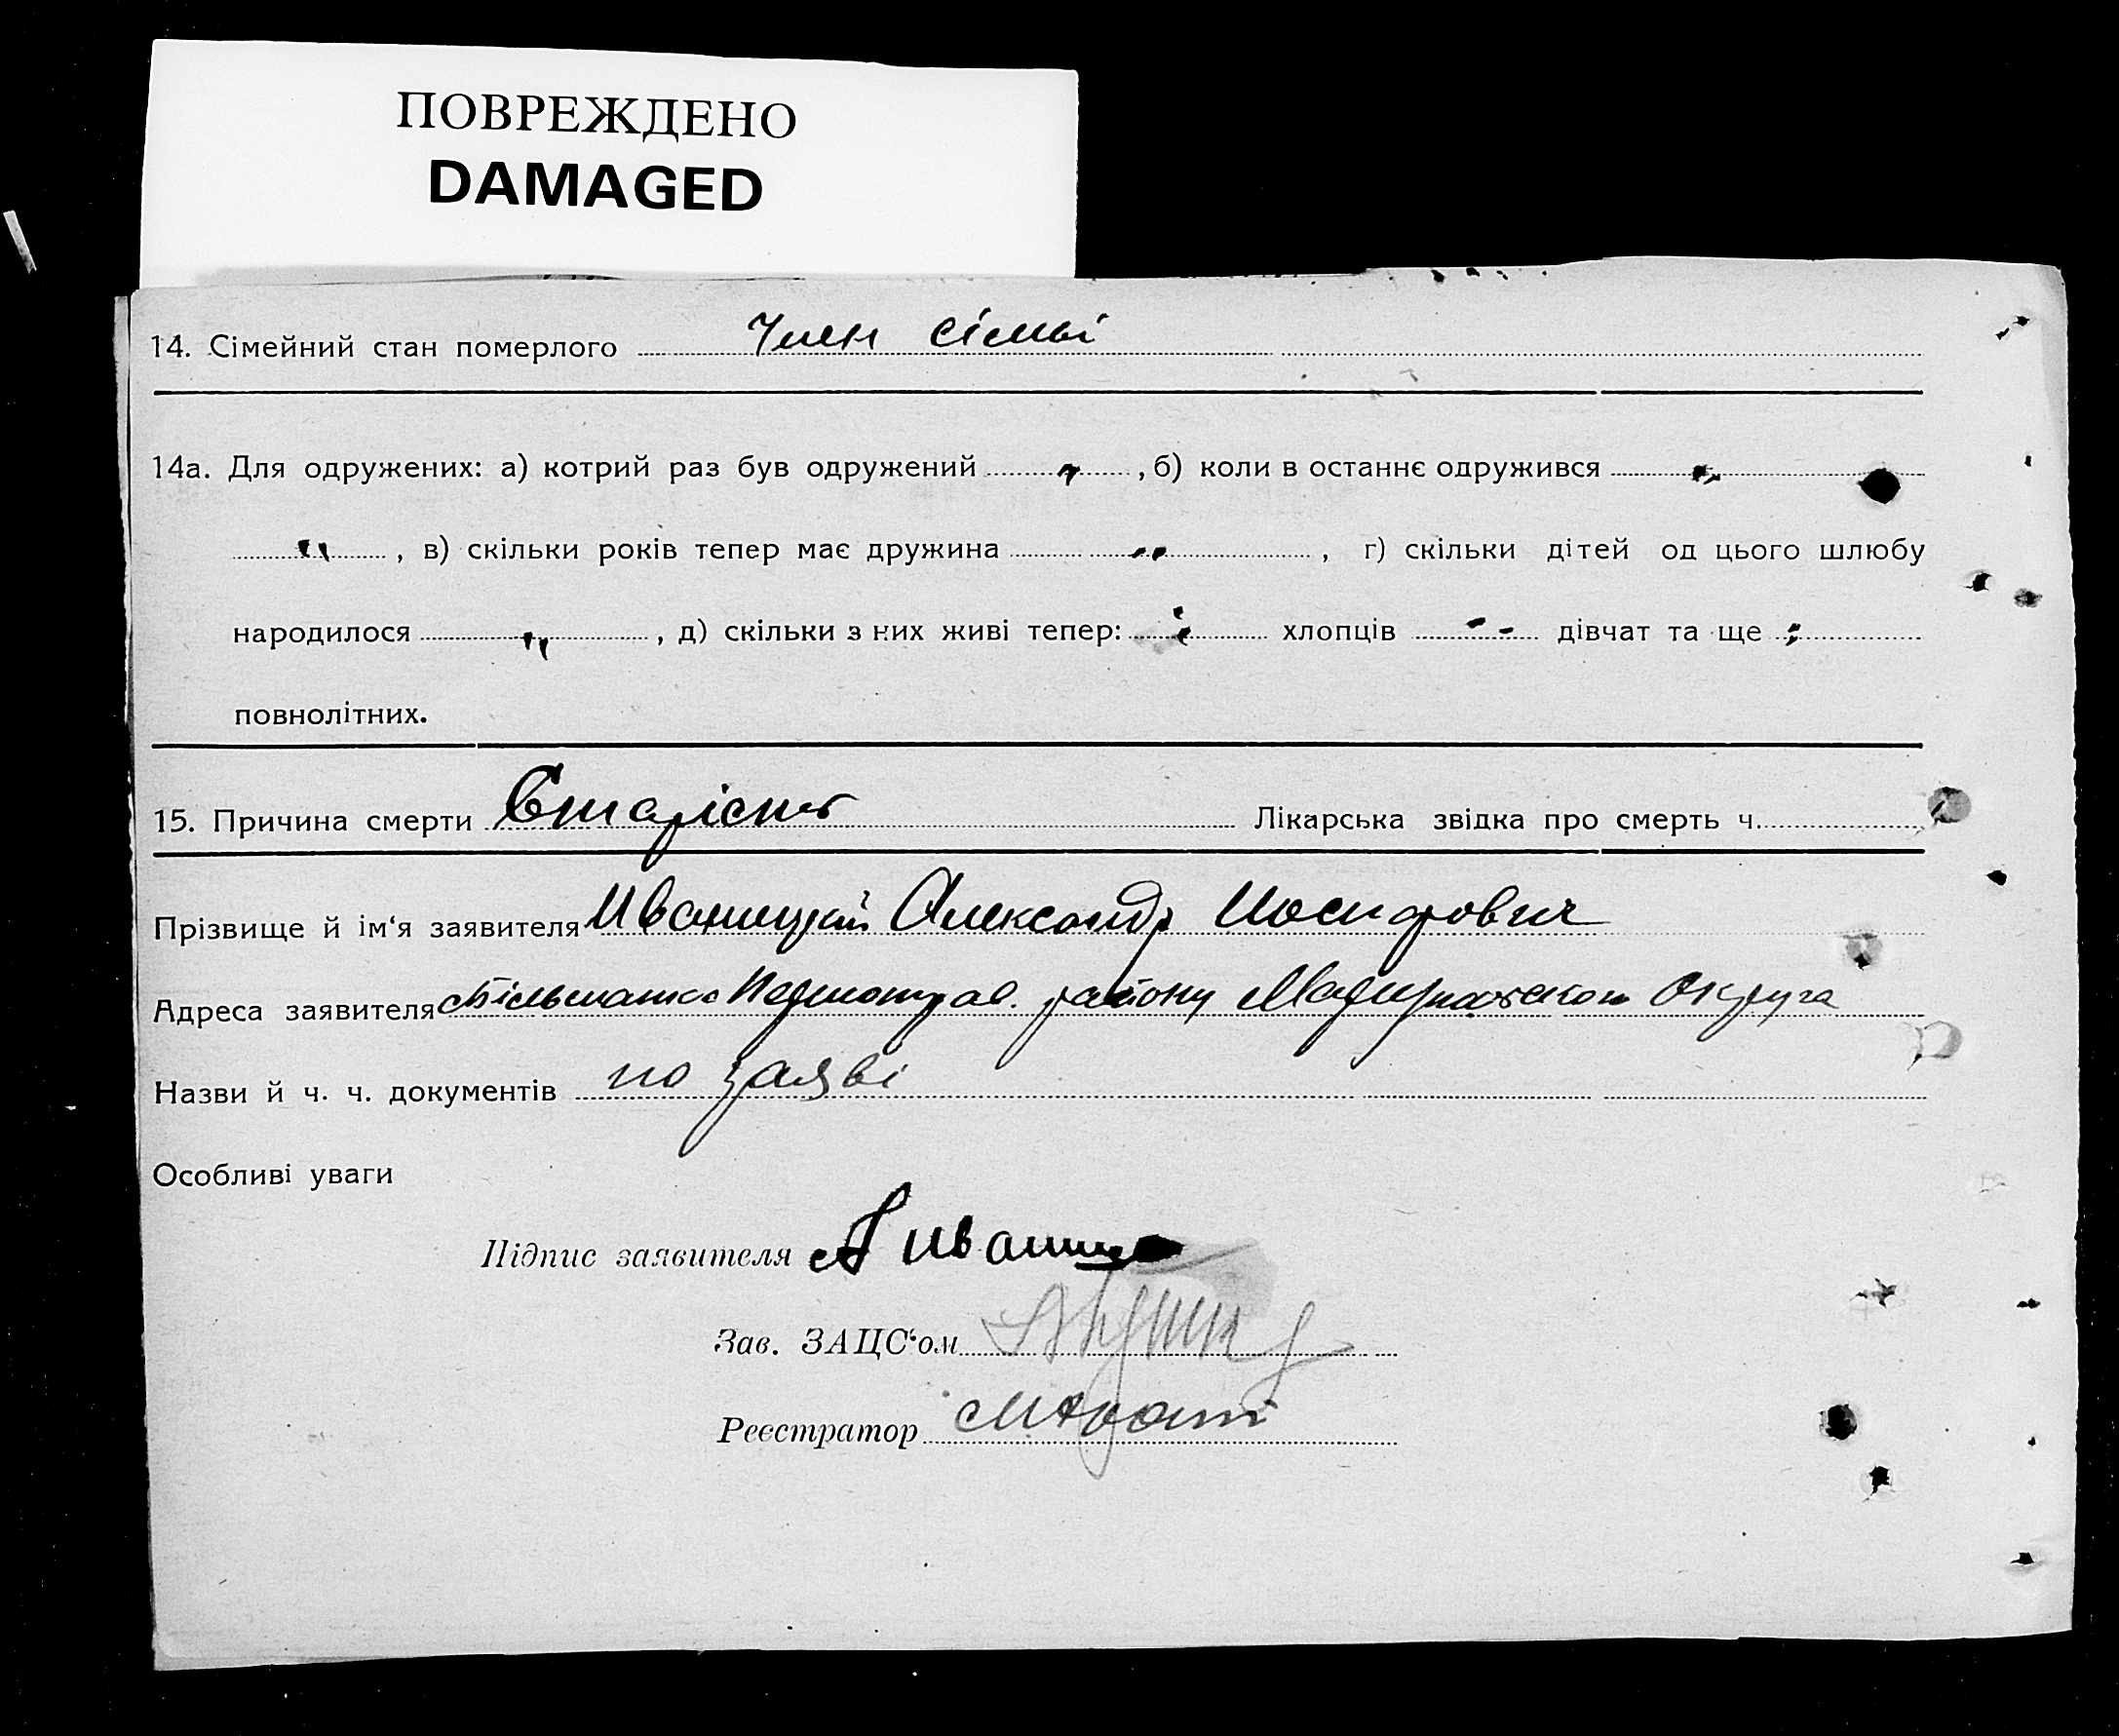 ПОВРЕЖДЕНО
DAMAGED
14. Сімейний стан померлого Член сімьі
14а. Для одружених: а) котрий раз був одружений " , б) коли в останнє одружився "
" , в) скільки років тепер має дружина " , г) скільки дітей од цього шлюбу
народилося " , д) скільки з них живі тепер: " хлопців " дівчат та ще "
повнолітних.
15. Причина смерти Старість Лікарська звідка про смерть ч.
Прізвище й ім'я заявителя Иваницкий Александр Иосифович
Адреса заявителя району Округа
Назви й ч. ч. документів по заяві
Особливі уваги
Підпис заявителя А Иваниц
Зав. ЗАЦС'ом
Реєстратор